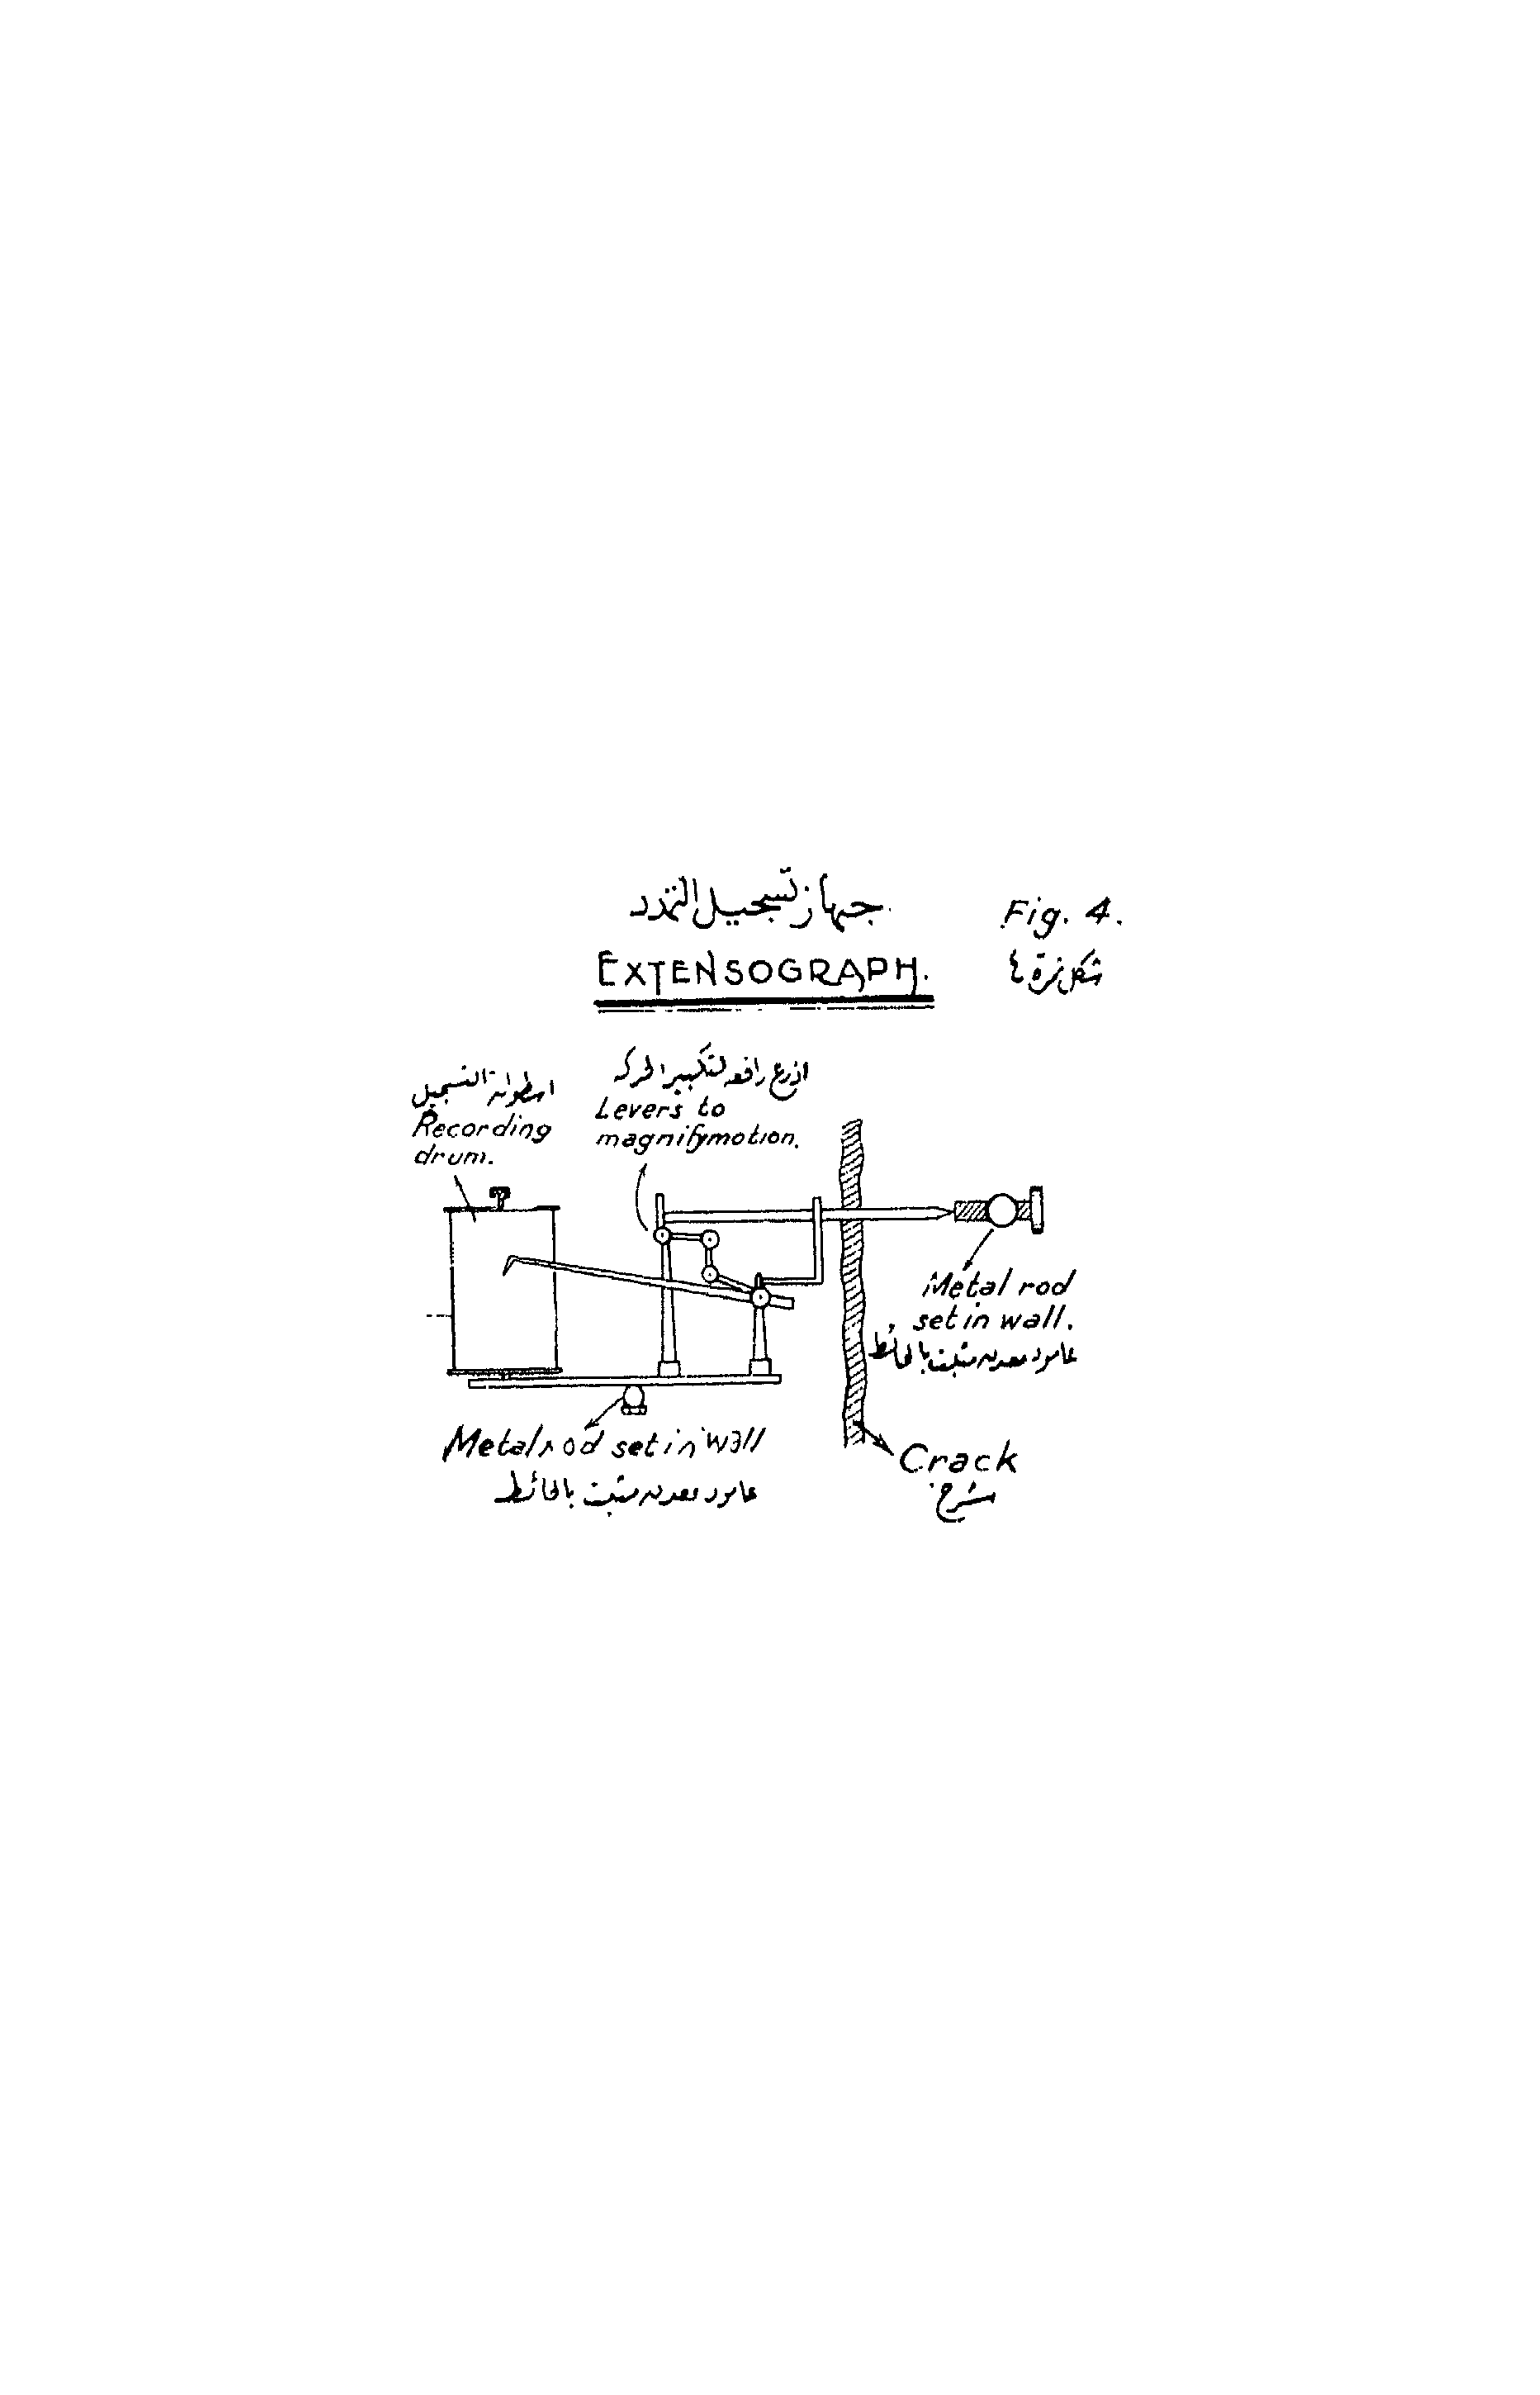 جهاز تسجيل التمدد
EXTENSOGRAPH.
Fig. 4.
شكل نمرة ٤
اسطوانة التسجيل
Recording
drum.
اذرع رافعه لتكبير الحركه
Levers to
magnify motion.
Metal rod
set in wall.
عامود معدنى مثبت بالحائط
Metal rod set in wall
عامود معدنى مثبت بالحائط
Crack
شرخ